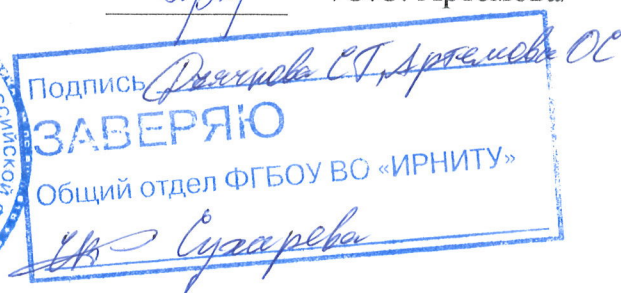 Подпись Дьячкова С.Г, Артемова ОС
ЗАВЕРЯЮ
Общий отдел ФГБОУ ВО «ИРНИТУ»
Сухарева